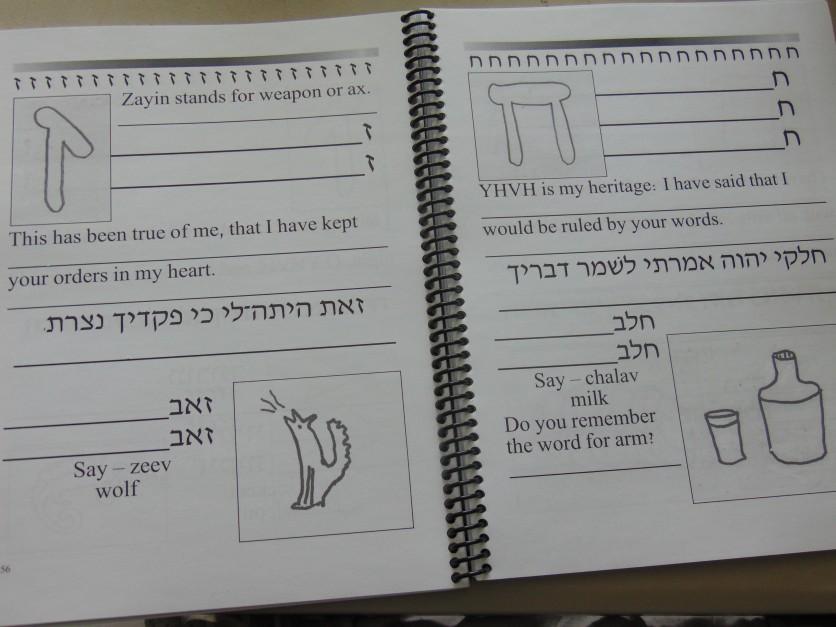 ז ז ז ז ז ז ז ז ז ז ז ז ז ז ז ז ז ז ז ז ז
Zayin stands for weapon or ax.
ז
ז
This has been true of me, that I have kept
your orders in my heart.
זאת היתה־לי כי פקדיך נצרת.
זאב
זאב
Say – zeev
wolf
56
ח ח ח ח ח ח ח ח ח ח ח ח ח ח ח ח ח ח ח
ח
ח
ח
YHVH is my heritage: I have said that I
would be ruled by your words.
חלקי יהוה אמרתי לשׁמר דבריך
חלב
חלב
Say – chalav
milk
Do you remember
the word for arm?